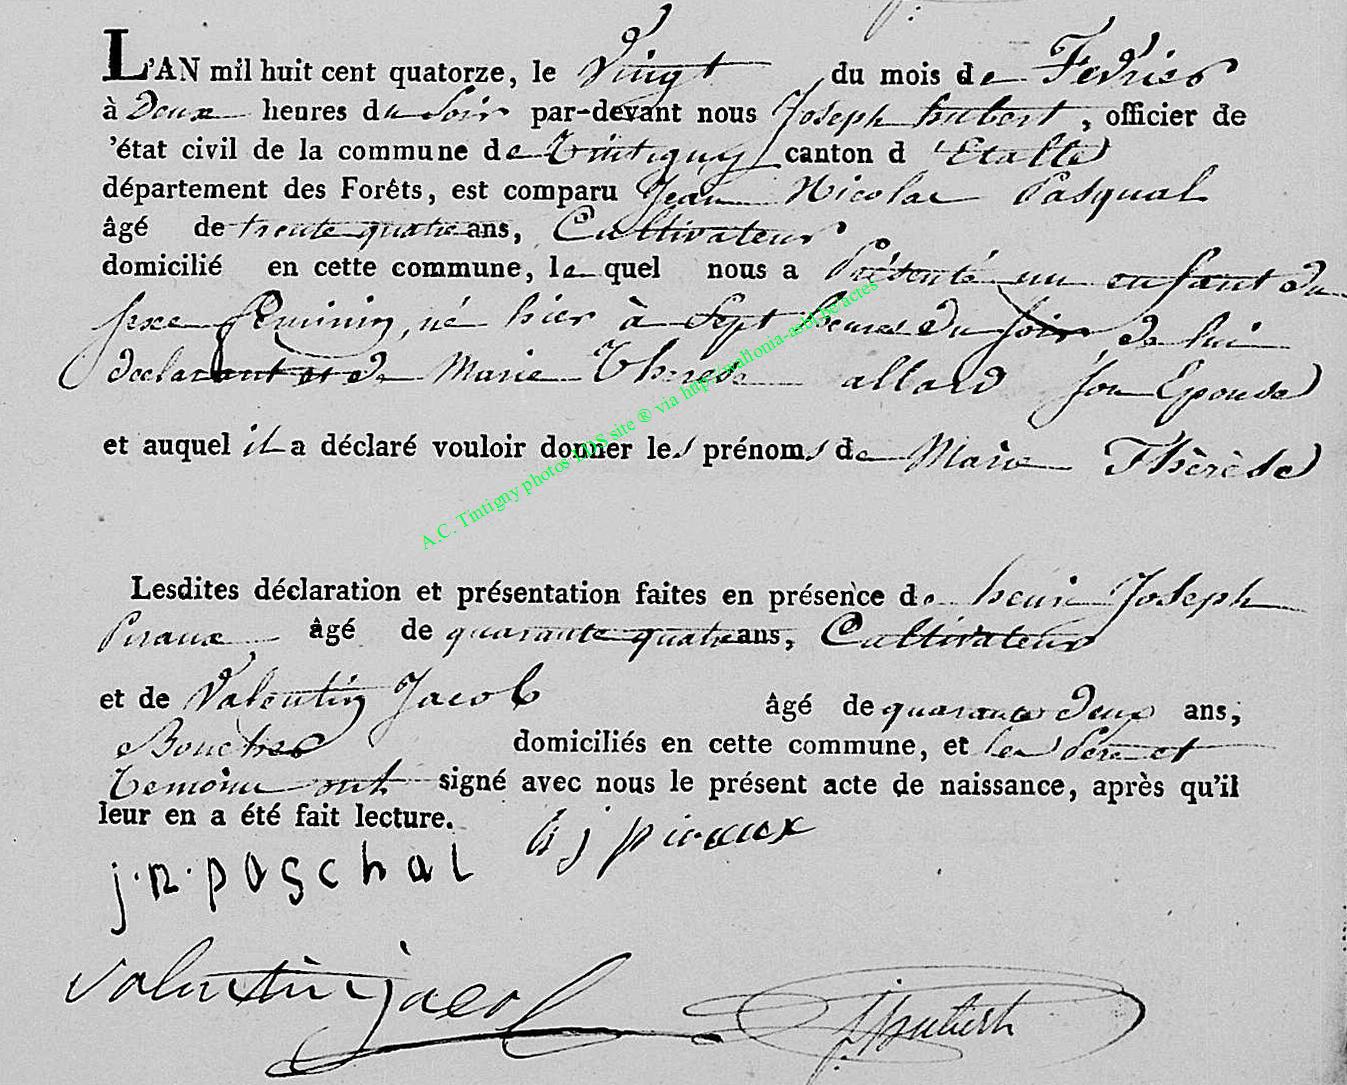 L'AN mil huit cent quatorze, le Vingt du mois de Fevrier
à Deux heures du Soir par-devant nous Joseph hubert, officier de
'état civil de la commune de Tintigny canton d 'Etalle
département des Forêts, est comparu Jean Nicolas Pasqual
âgé de trente quatre ans, Cultivateur
domicilié en cette commune, le quel nous a Présenté un enfant du
sexe feminin, né hier à Sept heures du soir, de lui
declarant et de Marie Therese allard son Epouse
et auquel il a déclaré vouloir donner les prénoms de Marie Thèrèse
A.C. Tintigny photos LDS site ® via http://wallonia-asbl.be/actes
Lesdites déclaration et présentation faites en présence de henri Joseph
Piraux, âgé de quarante quatre ans, Cultivateur
et de Valentin Jacob âgé de quarante deux ans,
domiciliés en cette commune, et les Pere et
Temoins ont signé avec nous le présent acte de naissance, après qu'il
leur en a été fait lecture.
h j piraux
j.n.paschal
valentin jacob
J hubert